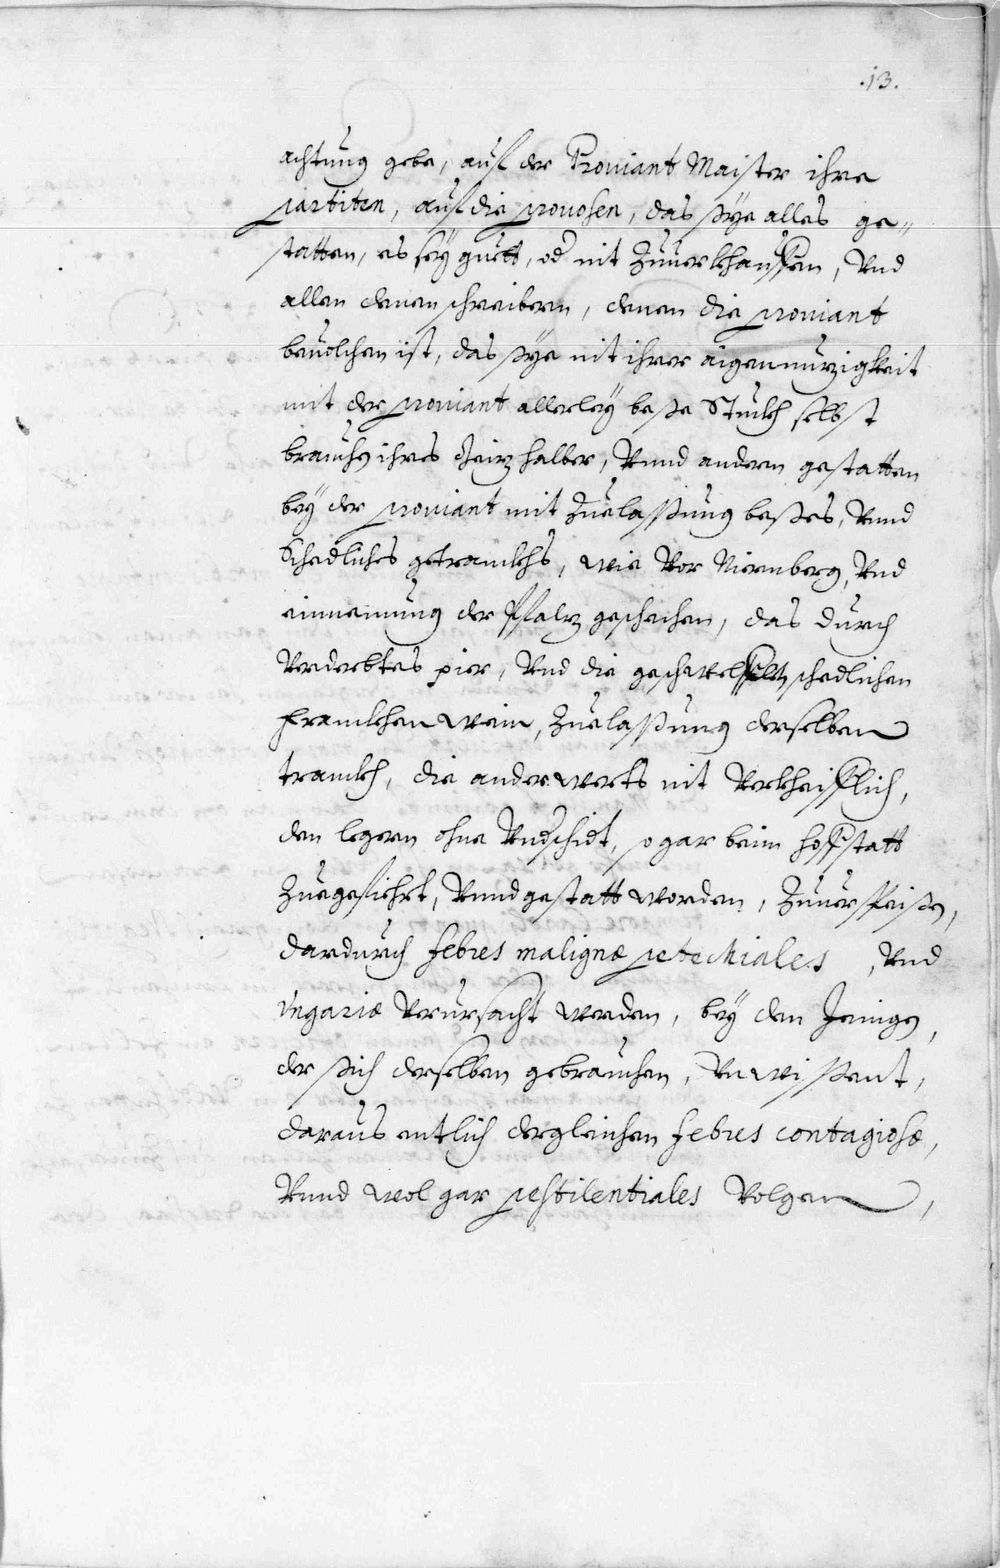 .13.
achtung gebe, auf der Proviant Maister ihre
partiten, auf die provosen, das sÿe alles ge„
statten, es seÿ guett, od nit zuuerkhauffen, Vnd
allen denen schreibern, denen die proviant
beuolchen ist, das sÿe nit ihrer aigennuzigkeit
mit der proviant allerleÿ beße Stuckh selbst
brauchen ihres Geiz halber, Vnnd andern gestatten
beÿ der proviant mit Zuelassung beßes, Vnnd
Schedliches getranckhs, wie Vor Niernberg, Vnd
einnemung der Pfalz geschechen, das durch
Verderbtes pier, Vnd die geschwefelten schedlichen
Franckhen wein, Zuelaßung derselben
tranckh, die anderwerts nit Verkheifflich,
den legern ohne Vndschidt, so gar beim hoffstatt
Zuegefiehrt, Vnnd gestatt worden, Zuuerspeißen,
dardurch febres malignæ petechiales, Vnd
Vngariæ Verursacht werden, beÿ den Jenigen,
der sich derselben gebrauchen, Vnwissent,
daraus entlich dergleichen febres contagiosæ,
Vnnd wol gar pestilentiales Volgen,